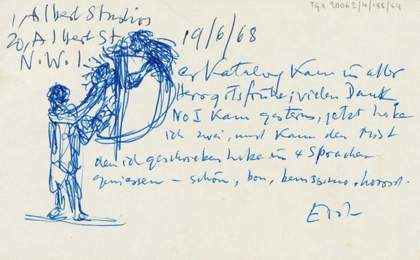 TGA 20062/4/188/64
1, Albert Studios
20, Albert St
N.W.1.
19/6/68
Der Katalog kam in aller
Herrgottsfrühe; vielen Dank
No I kam gestern, jetzt habe
ich zwei, und kann den Mist
den ich geschrieben habe in 4 Sprachen
geniessen – schön, bon, benissimo,